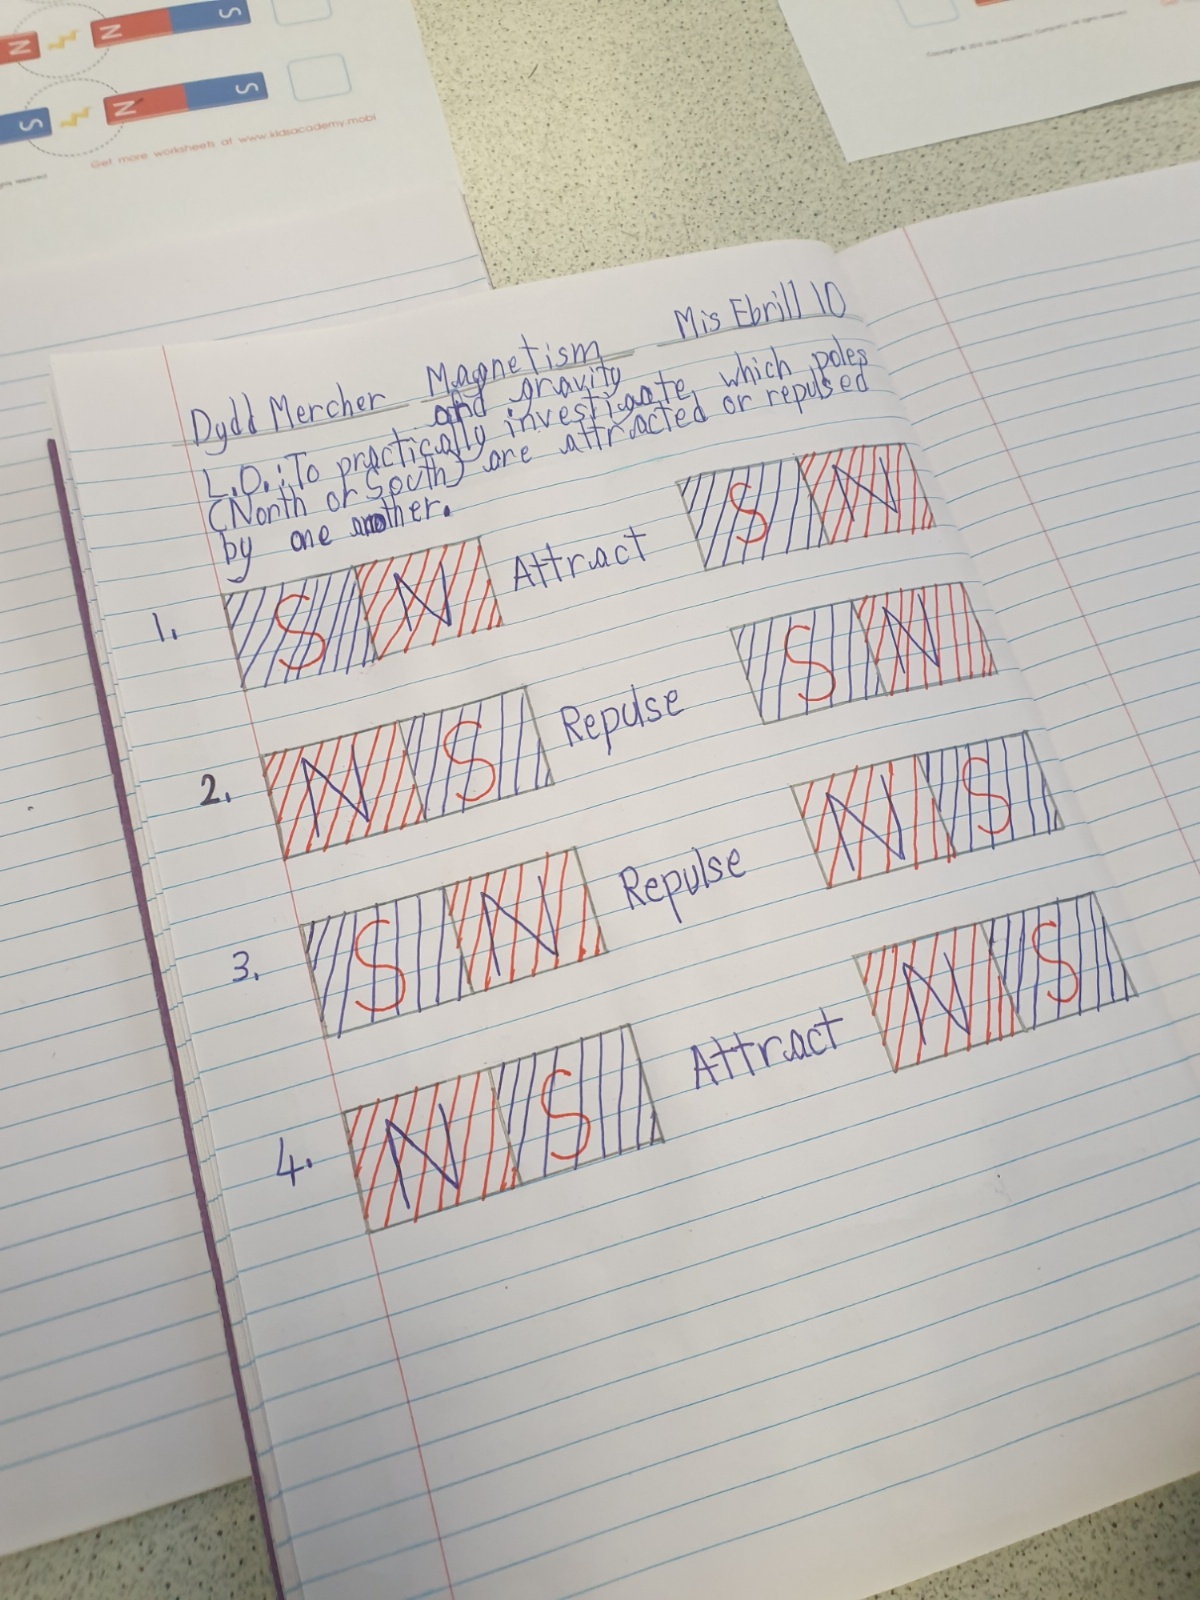 N N S
S N S
Get more worksheets at www.kidsacademy.mobi
Dydd Mercher Magnetism and gravity Mis Ebrill 10
L.O.: To practically investigate, which poles
(North or South) are attracted or repulsed
by one another.
1. S N Attract S N
2. N S Repulse S N
3. S N Repulse N S
4. N S Attract N S